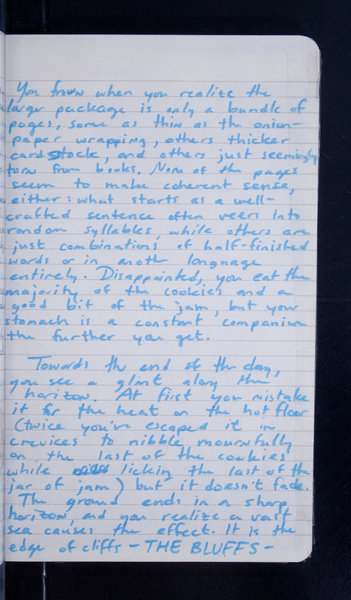 You frown when you realize the
larger package is only a bundle of
pages, some as thin as the onion-
paper wrapping, others thicker
card stock, and others just seemingly
torn from books. None of the pages
seem to make coherent sense,
either: what starts as a well-
crafted sentence often veers into
random syllables, while others are
just combinations of half-finished
words or in another language
entirely. Disappointed, you eat the
majority of the cookies and a
good bit of the jam, but your
stomach is a constant companion
the further you get.
Towards the end of the day,
you see a glint along the
horizon. At first you mistake
it for the heat on the hot floor
(twice you've escaped it in
crevices to nibble mournfully
on the last of the cookies
while licking the last of the
jar of jam) but it doesn't fade.
The ground ends in a sharp
horizon, and you realize a vast
sea causes the effect. It is the
edge of cliffs - THE BLUFFS -